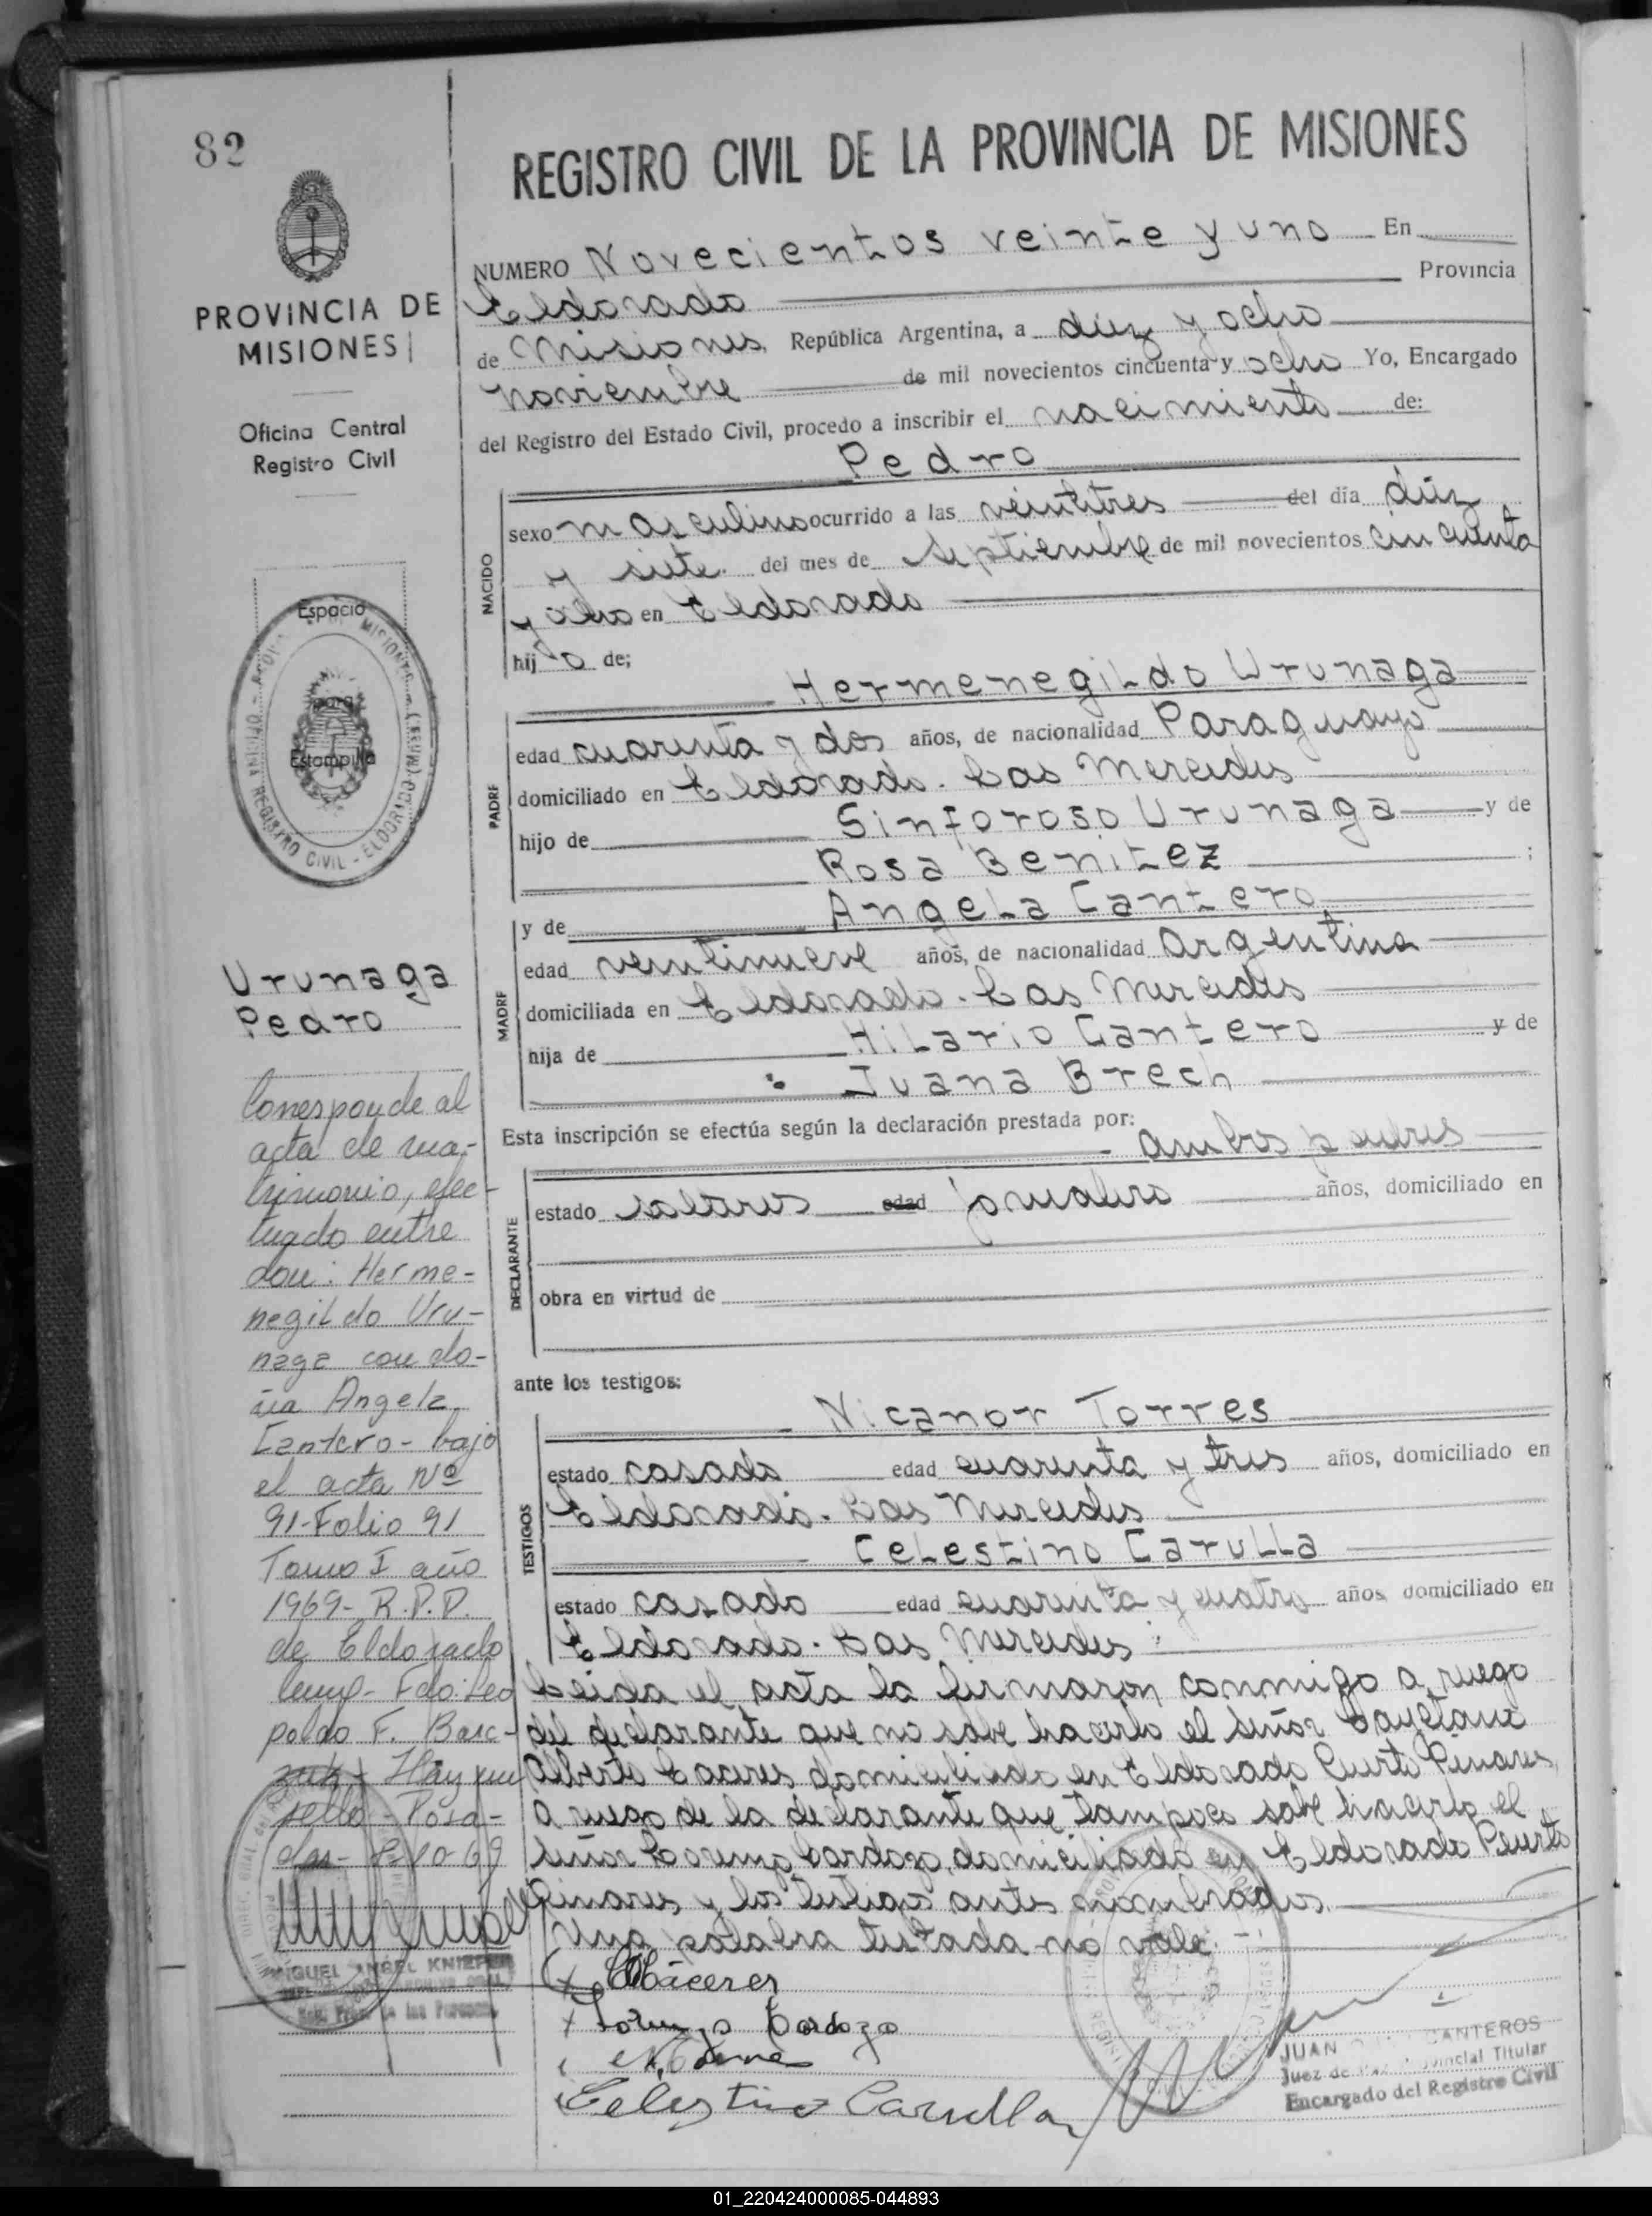 82
REGISTRO CIVIL DE LA PROVINCIA DE MISIONES
PROVINCIA DE
MISIONES
Oficina Central
Registro Civil
NUMERO Novecientos veinte y uno En
Eldorado Provincia
de Misiones, República Argentina, a diez y ocho
noviembre de mil novecientos cincuenta y ocho Yo, Encargado
del Registro del Estado Civil, procedo a inscribir el nacimiento de:
Pedro
NACIDO
sexo masculino ocurrido a las veintitres del día diez
y siete del mes de septiembre de mil novecientos cincuenta
y ocho en Eldorado
hijo de;
Hermenegildo Urunaga
PADRE
edad cuarenta y dos años, de nacionalidad Paraguayo
domiciliado en Eldorado. Las Mercedes
hijo de Sinforoso Urunaga y de
Rosa Benitez ;
y de Angela Cantero
MADRE
edad veintinueve años, de nacionalidad Argentina
domiciliada en Eldorado. Las Mercedes
hija de Hilario Cantero y de
Juana Brech
Esta inscripción se efectúa según la declaración prestada por:
ambos padres
DECLARANTE
estado solteros edad jornalero años, domiciliado en
obra en virtud de
ante los testigos:
Nicanor Torres
TESTIGOS
estado casado edad cuarenta y tres años, domiciliado en
Eldorado. Las Mercedes
Celestino Carulla
estado casado edad cuarenta y cuatro años domiciliado en
Eldorado. Las Mercedes
Leida el acta la firmaron conmigo a ruego
del declarante que no sabe hacerlo el señor Cayetano
Alberto Caceres domiciliado en Eldorado Puerto Pinares,
a ruego de la declarante que tampoco sabe hacerlo el
señor Lorenzo Cardozo, domiciliado en Eldorado Puerto
Pinares y los testigos antes nombrados.
Una palabra testada no vale.
Cáceres
Lorenzo Cardozo
N. Torres
Celestino Carulla
JUAN CANTEROS
Juez de Paz Provincial Titular
Encargado del Registro Civil
Espacio
para
Estampilla
Urunaga
Pedro
Corresponde al
acta de ma-
trimonio, efec-
tuado entre
don: Herme-
negildo Uru-
naga con do-
ña Angela
Cantero - bajo
el acta Nº
91-Folio 91
Tomo I año
1969- R.P.P.
de Eldorado
Fdo: Leo
poldo F. Barc-
zuk - Hay un
sello - Posa-
das-
MIGUEL ANGEL KNIEPER
Reg. Prov. de las Personas
01_220424000085-044893